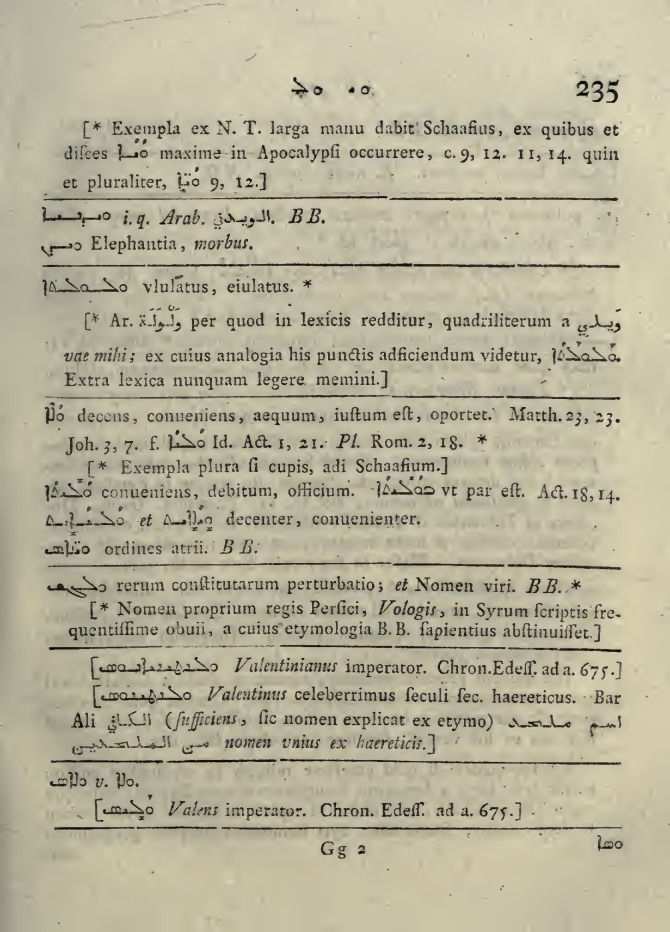 ܘܝ ܘܠ 235
[* Exempla ex N. T. larga manu dabit Schaafius, ex quibus et
diſces ܘܳܝܳܐ maxime in Apocalypſi occurrere, c. 9, 12. 11, 14. quin
et pluraliter, 9, 12.]
i. q. Arab. BB.
Elephantia, morbus.
vlulatus, eiulatus. *
[* Ar. per quod in lexicis redditur, quadriliterum a
vae mihi; ex cuius analogia his punctis adficiendum videtur,
Extra lexica nunquam legere memini.]
ܘܳܠܶܐ decens, conueniens, aequum, iuſtum eſt, oportet. Matth. 23, 23.
Joh. 3, 7. f. ܘܳܠܝܳܐ Id. Act. 1, 21. Pl. Rom. 2, 18. *
[* Exempla plura ſi cupis, adi Schaafium.]
ܘܳܠܺܝܬܳܐ conueniens, debitum, officium. vt par eſt. Act. 18, 14.
et decenter, conuenienter.
ordines atrii. BB.
ܘܠܓܫ rerum conſtitutarum perturbatio; et Nomen viri. BB. *
[* Nomen proprium regis Perſici, Vologis, in Syrum ſcriptis fre-
quentiſſime obuii, a cuius etymologia B. B. ſapientius abſtinuiſſet.]
[ܘܠܢܛܝܢܝܢܘܣ Valentinianus imperator. Chron. Edeſſ. ad a. 675.]
[ܘܠܢܛܝܢܘܣ Valentinus celeberrimus ſeculi ſec. haereticus. Bar
Ali الكافي (ſufficiens, ſic nomen explicat ex etymo)
nomen vnius ex haereticis.]
v. ܘܠܐ.
[ܘܳܠܺܝܣ Valens imperator. Chron. Edeſſ. ad a. 675.]
Gg 2